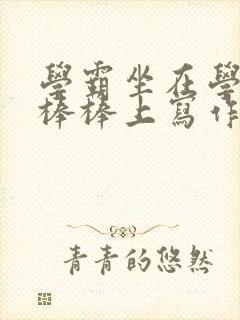 學霸坐在學
棒棒上寫作
青青的悠然